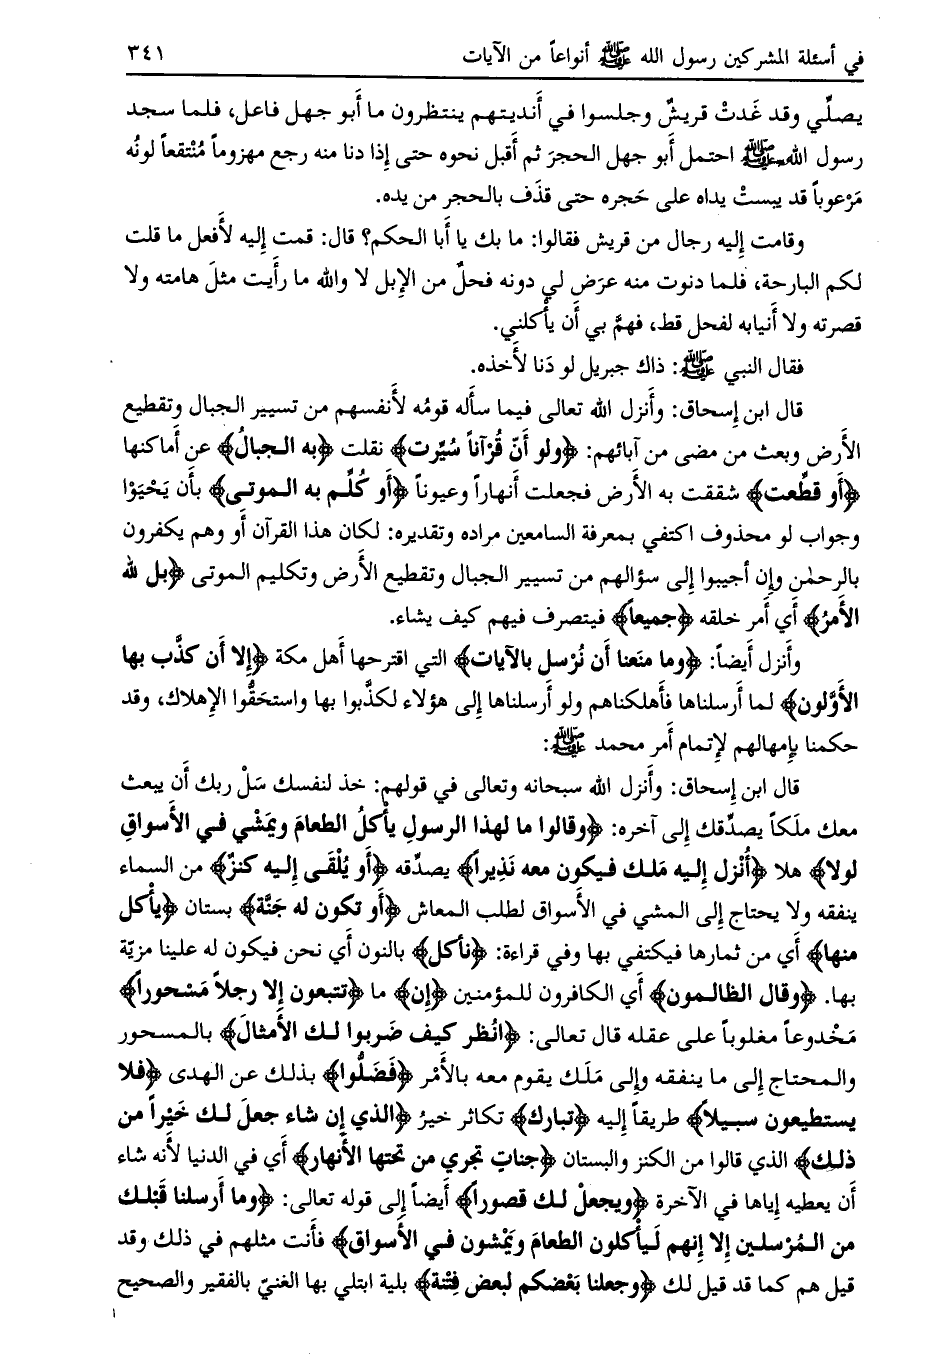 في أسئلة المشركين رسول الله ﷺ أنواعاً من الآيات ٣٤١
يصلّي وقد غَدتْ قريشٌ وجلسوا في أَنديتهم ينتظرون ما أَبو جهل فاعل، فلما سجد
رسول الله ﷺ احتمل أَبو جهل الحجرَ ثم أَقبل نحوه حتى إِذا دنا منه رجع مهزوماً مُنْتقعاً لونُه
مَرْعوباً قد يبستْ يداه على حَجره حتى قذَف بالحجر من يده.
وقامت إِليه رجال من قريش فقالوا: ما بك يا أَبا الحكم؟ قال: قمت إِليه لأَفعل ما قلت
لكم البارحة، فلما دنوت منه عرَض لي دونه فحلٌ من الإِبل لا والله ما رأَيت مثلَ هامته ولا
قصرته ولا أَنيابه لفحل قط، فهمَّ بي أَن يأكلني.
فقال النبي ﷺ: ذاك جبريل لو دَنا لأَخذه.
قال ابن إسحاق: وأَنزل الله تعالى فيما سأَله قومُه لأَنفسهم من تسيير الجبال وتقطيع
الأَرض وبعث من مضى من آبائهم: ﴿ولو أَنّ قُرْآناً سُيِّرت﴾ نقلت ﴿به الجبالُ﴾ عن أَماكنها
﴿أَو قطِّعت﴾ شققت به الأَرض فجعلت أَنهاراً وعيوناً ﴿أَو كُلِّم به الموتى﴾ بأَن يَحْيَوْا
وجواب لو محذوف اكتفي بمعرفة السامعين مراده وتقديره: لكان هذا القرآن أَو وهم يكفرون
بالرحمٰن وإِن أجيبوا إِلى سؤالهم من تسيير الجبال وتقطيع الأَرض وتكليم الموتى ﴿بل لله
الأَمرُ﴾ أَي أَمر خلقه ﴿جميعاً﴾ فيتصرف فيهم كيف يشاء.
وأَنزل أَيضاً: ﴿وما منَعنا أَن نُرْسل بالآيات﴾ التي اقترحها أَهل مكة ﴿إِلا أَن كذَّب بها
الأَوَّلون﴾ لما أَرسلناها فأَهلكناهم ولو أَرسلناها إِلى هؤلاء لكذَّبوا بها واستحَقُّوا الإِهلاك، وقد
حكمنا بإِمهالهم لإِتمام أَمر محمد ﷺ:
قال ابن إسحاق: وأَنزل الله سبحانه وتعالى في قولهم: خذ لنفسك سَلْ ربك أَن يبعث
معك ملَكاً يصدِّقك إِلى آخره: ﴿وقالوا ما لهذا الرسولِ يأْكلُ الطعامَ ويمْشي في الأَسواقِ
لولا﴾ هلا ﴿أُنْزل إِليه مَلك فيكون معه نَذيراً﴾ يصدِّقه ﴿أَو يُلْقَى إِليه كنزٌ﴾ من السماء
ينفقه ولا يحتاج إِلى المشي في الأَسواق لطلب المعاش ﴿أَو تكون له جَنَّة﴾ بستان ﴿يأْكل
منها﴾ أَي من ثمارها فيكتفي بها وفي قراءة: ﴿نأْكل﴾ بالنون أَي نحن فيكون له علينا مزيّة
بها. ﴿وقال الظالمون﴾ أَي الكافرون للمؤمنين ﴿إِن﴾ ما ﴿تتبعون إِلا رجلاً مَسْحوراً﴾
مَخْدوعاً مغلوباً على عقله قال تعالى: ﴿انْظر كيف ضَربوا لك الأَمثالَ﴾ بالمسحور
والمحتاج إِلى ما ينفقه وإِلى مَلَك يقوم معه بالأَمْر ﴿فَضَلُّوا﴾ بذلك عن الهدى ﴿فلا
يستطيعون سبيلاً﴾ طريقاً إِليه ﴿تبارك﴾ تكاثر خيرُ ﴿الذي إِن شاء جعلَ لك خَيْراً من
ذلك﴾ الذي قالوا من الكنز والبستان ﴿جناتٍ تجري من تحتها الأَنهار﴾ أَي في الدنيا لأَنه شاء
أَن يعطيه إِياها في الآخرة ﴿ويجعلْ لك قصوراً﴾ أَيضاً إِلى قوله تعالى: ﴿وما أَرسلنا قَبْلك
من المُرْسلين إِلا إِنهم لَيأْكلون الطعامَ ويَمْشون في الأَسواق﴾ فأَنت مثلهم في ذلك وقد
قيل هم كما قد قيل لك ﴿وجعلنا بَعْضكم لبعض فِتْنة﴾ بلية ابتلي بها الغنيّ بالفقير والصحيح